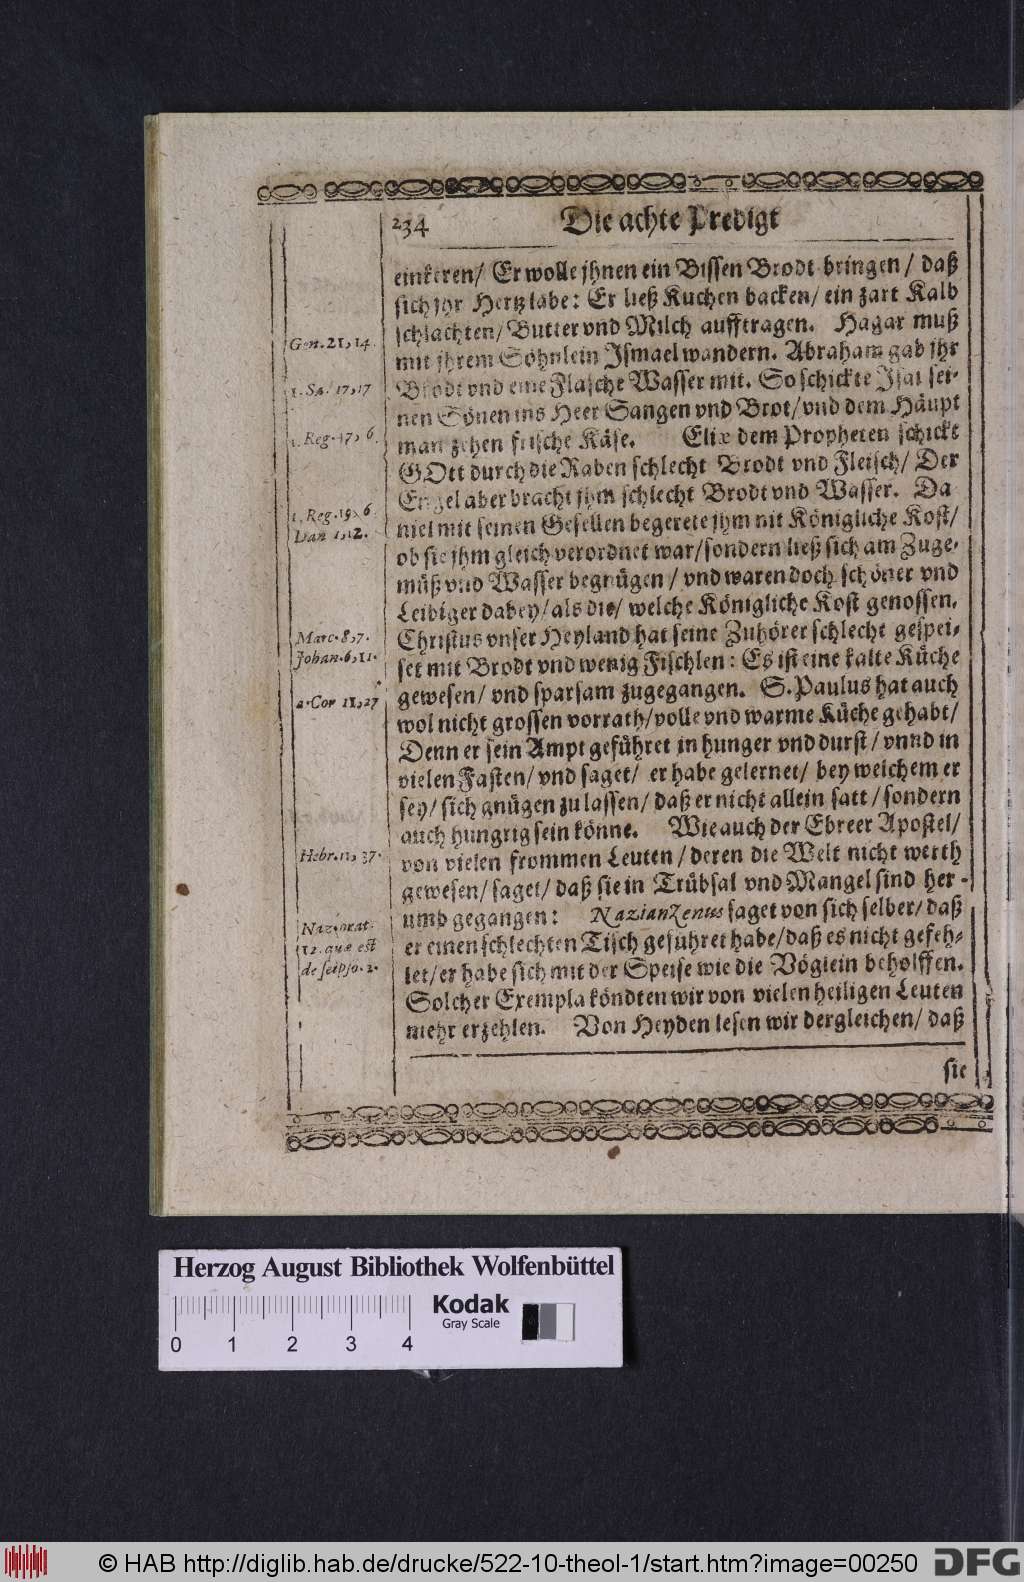 234
Die achte Predigt
einkeren/ Er wolle jhnen ein Bissen Brodt bringen/ daß
sich jhr Hertz labe: Er ließ Kuchen backen/ ein zart Kalb
schlachten/ Butter vnd Milch aufftragen. Hagar muß
mit jhrem Söhnlein Jsmael wandern. Abraham gab jhr
Brodt vnd eine Flasche Wasser mit. So schickte Jsai sei-
nen Sönen ins Heer Sangen vnd Brot/ vnd dem Häupt
man zehen frische Käse. Eliæ dem Propheten schickt
GOtt durch die Raben schlecht Brodt vnd Fleisch/ Der
Engel aber bracht jhm schlecht Brodt vnd Wasser. Da
niel mit seinen Gesellen begerete jhm nit Königliche Kost/
ob sie jhm gleich verordnet war/ sondern ließ sich am Zuge-
müß vnd Wasser begnügen/ vnd waren doch schöner vnd
Leibiger dabey/ als die/ welche Königliche Kost genossen.
Christus vnser Heyland hat seine Zuhörer schlecht gespei-
set mit Brodt vnd wenig Fischlen: Es ist eine kalte Küche
gewesen/ vnd sparsam zugegangen. S. Paulus hat auch
wol nicht grossen vorrath/ volle vnd warme Küche gehabt/
Denn er sein Ampt geführet in hunger vnd durst/ vnnd in
vielen Fasten/ vnd saget/ er habe gelernet/ bey welchem er
sey/ sich gnügen zu lassen/ daß er nicht allein satt/ sondern
auch hungrig sein könne. Wie auch der Ebreer Apostel/
von vielen frommen Leuten/ deren die Welt nicht werth
gewesen/ saget/ daß sie in Trübsal vnd Mangel sind her-
umb gegangen: Nazianzenus saget von sich selber/ daß
er einen schlechten Tisch geführet habe/ daß es nicht gefeh-
let/ er habe sich mit der Speise wie die Vöglein beholffen.
Solcher Exempla köndten wir von vielen heiligen Leuten
mehr erzehlen. Von Heyden lesen wir dergleichen/ daß
sie
Gen. 21, 14.
1. Sa. 17, 17
1. Reg. 17, 6.
1. Reg. 19, 6
Dan 1, 12.
Marc. 8, 7.
Johan. 6, 11.
2. Cor 11, 27
Hebr. 11, 37.
Naz. orat.
12. quæ est
de seipso. 2.
Herzog August Bibliothek Wolfenbüttel
Kodak
Gray Scale
0 1 2 3 4
© HAB http://diglib.hab.de/drucke/522-10-theol-1/start.htm?image=00250
DFG